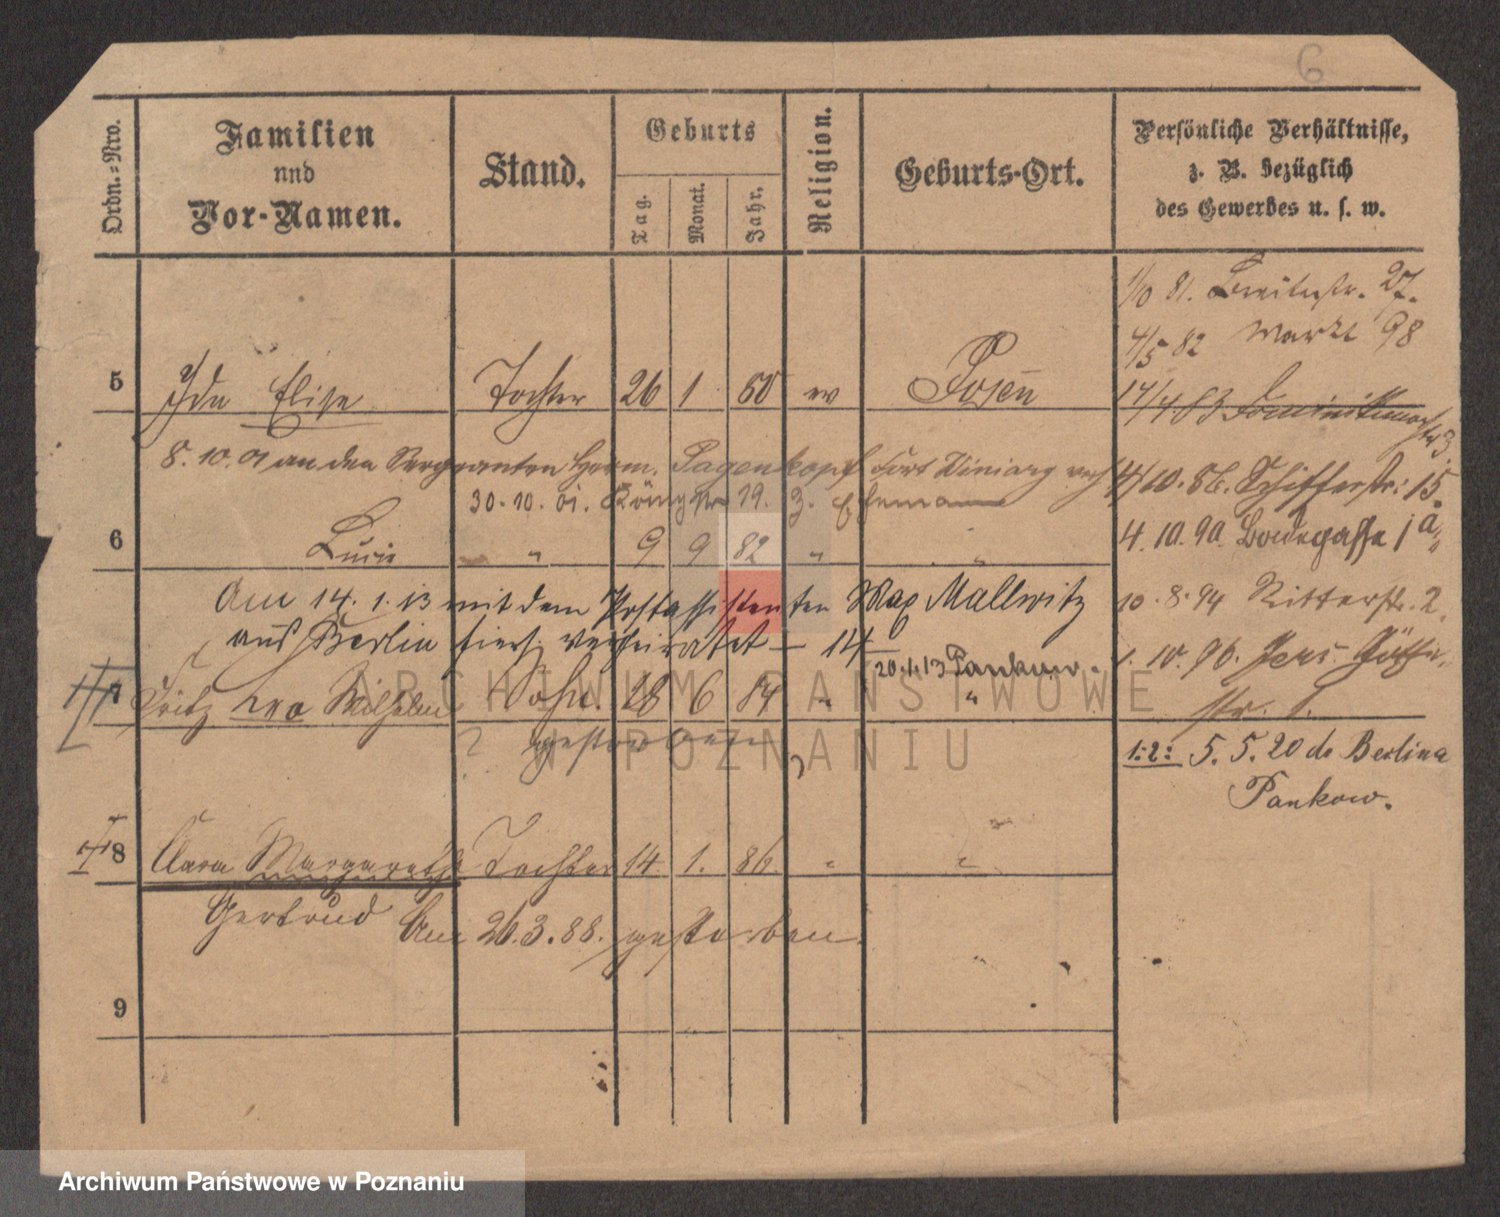 6
Ordn.-Nro.
Familien
und
Vor-Namen.
Stand.
Geburts
Tag.
Monat.
Jahr.
Religion.
Geburts-Ort.
Persönliche Verhältnisse,
z. B. bezüglich
des Gewerbes u. s. w.
1/10 81. Breitestr. 27.
4/5 82 Markt 98
5 Ida Elise Tochter 26 1 ev Posen
17/4 83
8. 10. 01 an den Sergeanten Herm. Pagenkopf Fort Winiary verh
4/10. 86. Schifferstr. 15.
30. 10. 01. Königstr 19. z. Ehemann
6 Lucie " 9 9 82 " "
4. 10. 90. 1a
Am 14. 1. 13 mit dem Postassistenten Max Mallwitz
10. 8. 94 Ritterstr. 2
aus Berlin hierj verheiratet – 14
1. 10. 96.
20.1.13 Pankow.
7 Fritz Leo Wilhelm Sohn. 28 6 84 " "
str. 1.
? gestorben ?
1.2: 5. 5. 20 do Berlina
Pankow.
8 Clara Margarethe Tochter 14. 1. 86. " "
Gertrud Am 26. 3. 88. gestorben.
9
ARCHIWUM PAŃSTWOWE
W POZNANIU
Archiwum Państwowe w Poznaniu